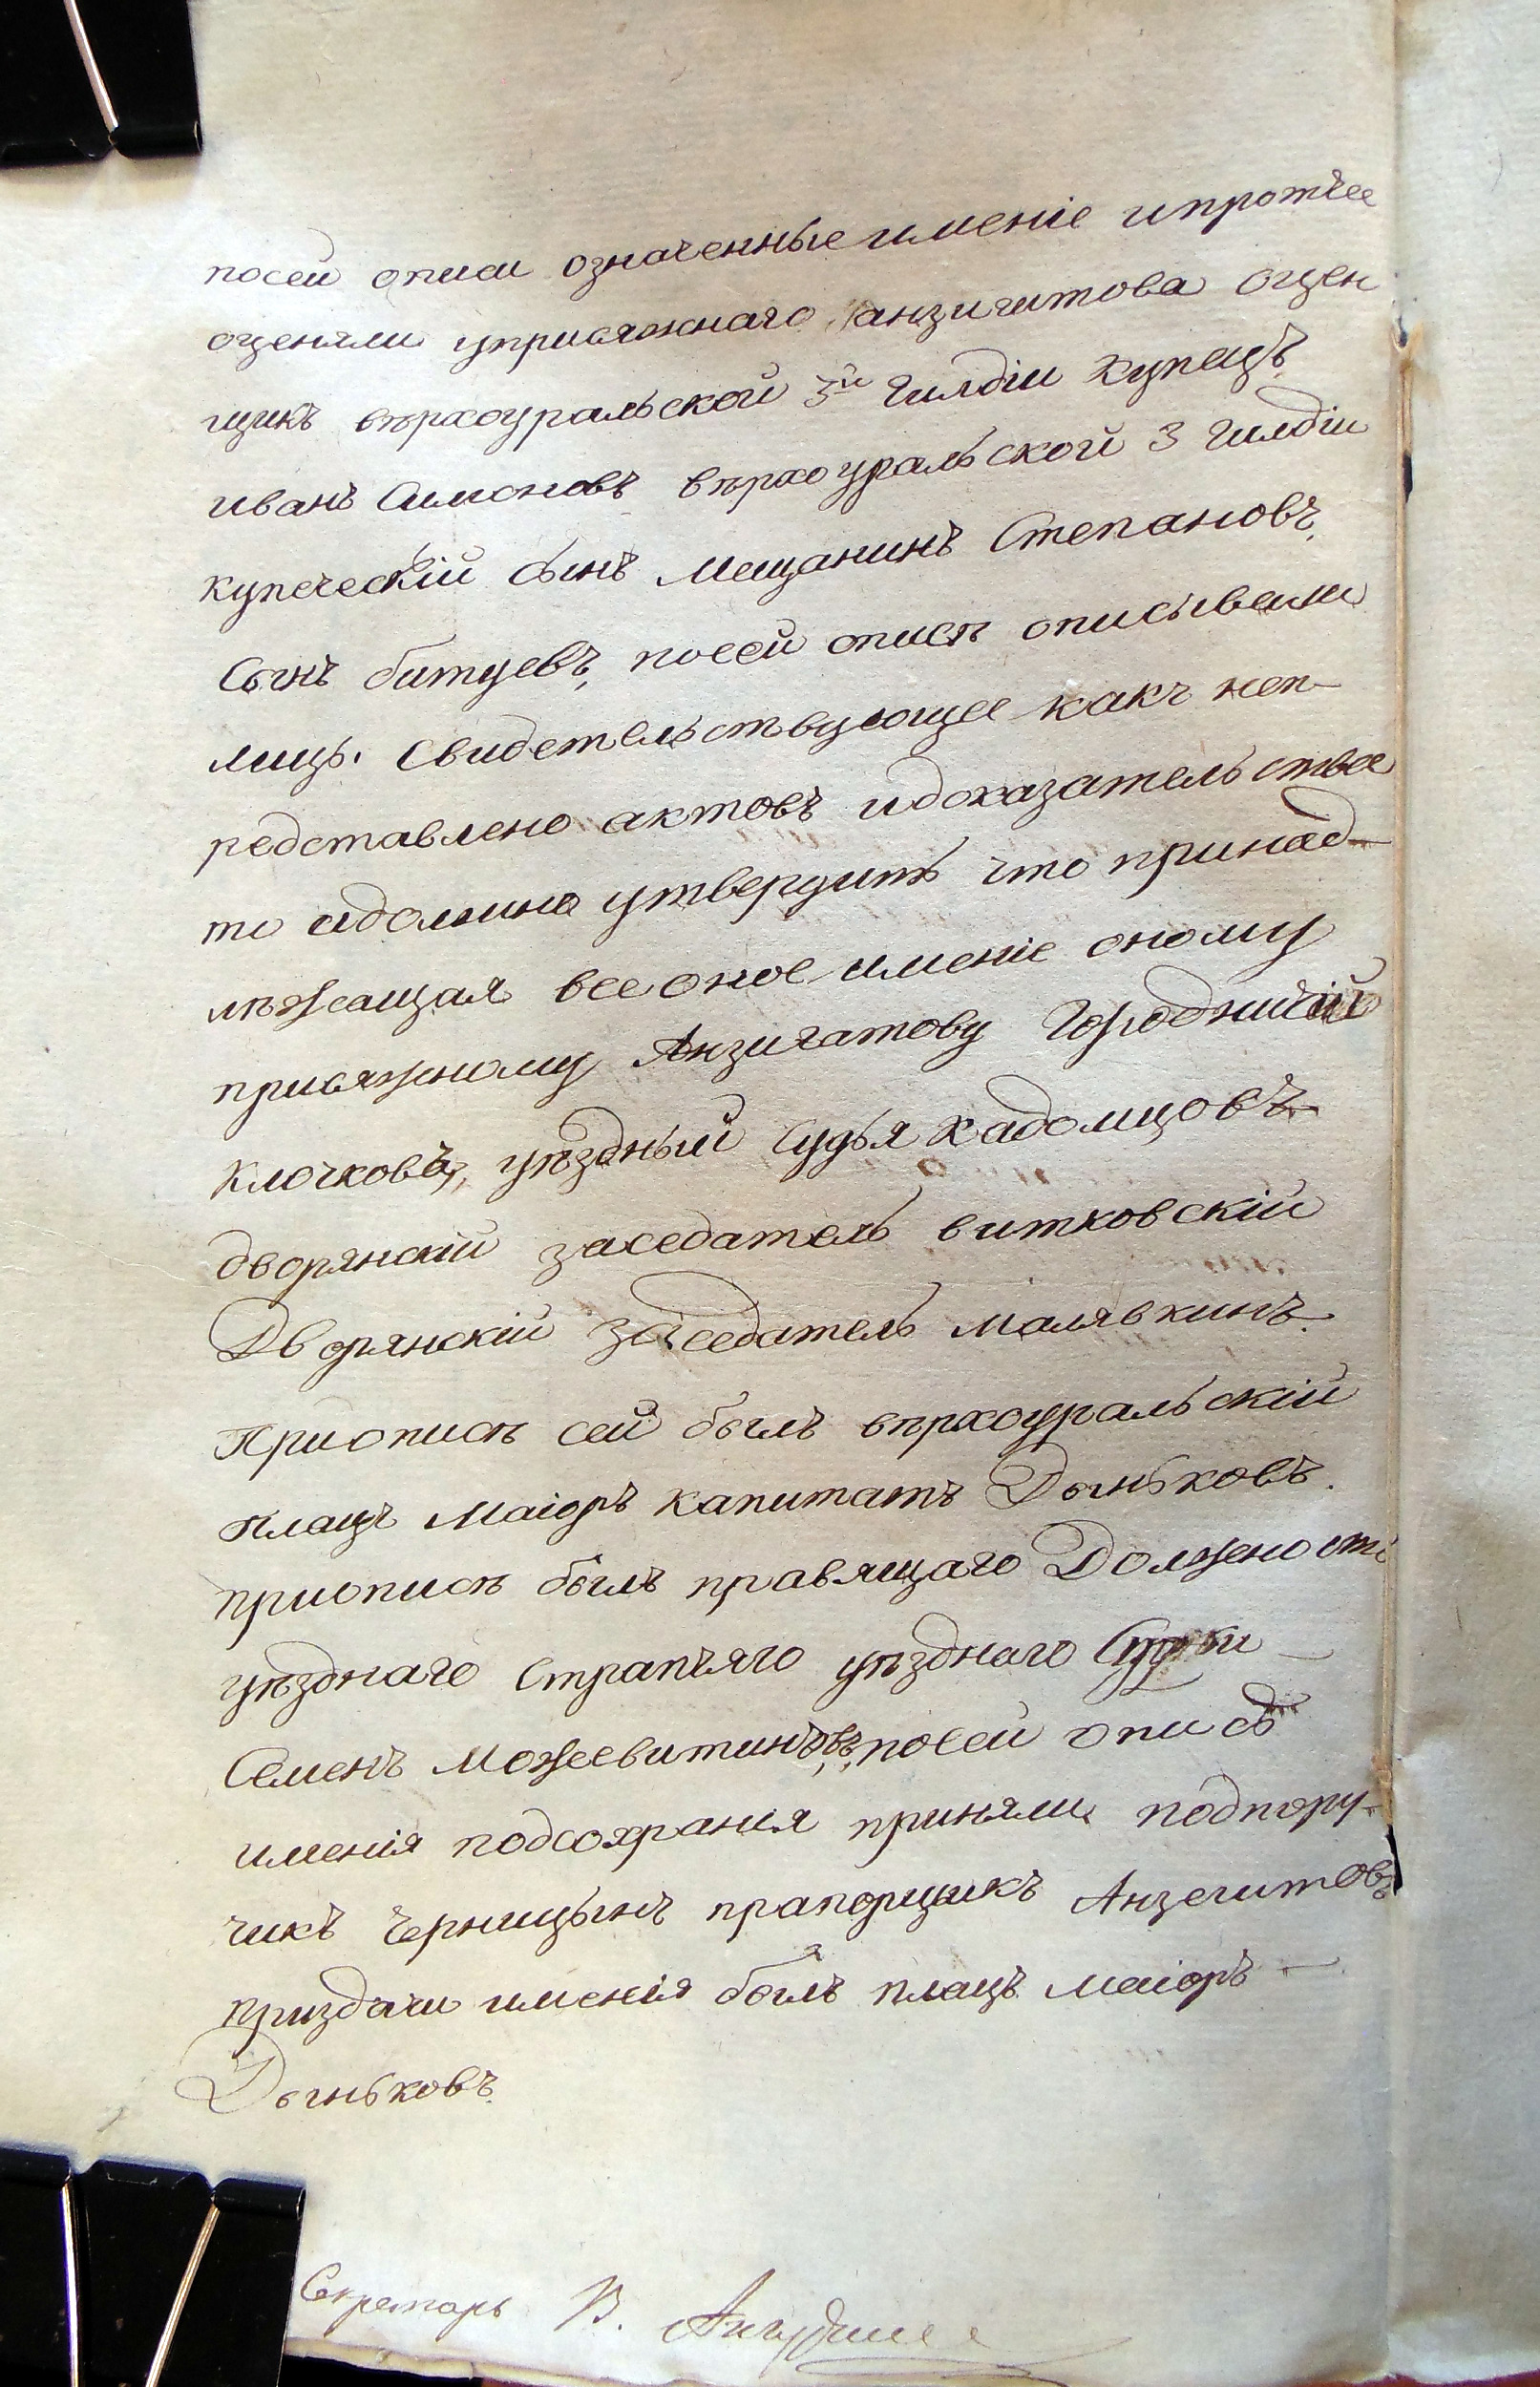 посей описи означенные имение ипротчее
оценяли уприсяжнаго анзигитова оцен
щикъ вѣрхоуральской 3й гилдіи купецъ
иванъ Симоновъ вѣрхоуральской 3 гилдіи
купеческій сынъ мещанинъ Степановъ
Сынъ битуевъ, посей описѣ описывали
лицъ. Свидетельствующее какъ неп-
редставлено актовъ идоказательства
то идолжно утвердить что принад-
лѣжащая все оное имение оному
присяжному Анзигатову Городничій
Клочковъ, уѣздный Судья кадомцовъ
дворянскій заседатель витковскій
Дворянскій заседатель малявкинъ
Приописѣ сей былъ вѣрхоуральскій
плацъ маіоръ капитанъ Дыньковъ.
приописѣ былъ правящаго Должность
уѣзднаго Стряпчяго уѣзднаго Судьи
Семенъ Можевитинъ, посей описѣ
имения подсохрания приняли подпору-
чикъ Черницынъ прапорщикъ Анзегитовъ
приздачи имения былъ плацъ маіоръ
Дыньковъ
Секретарь В.